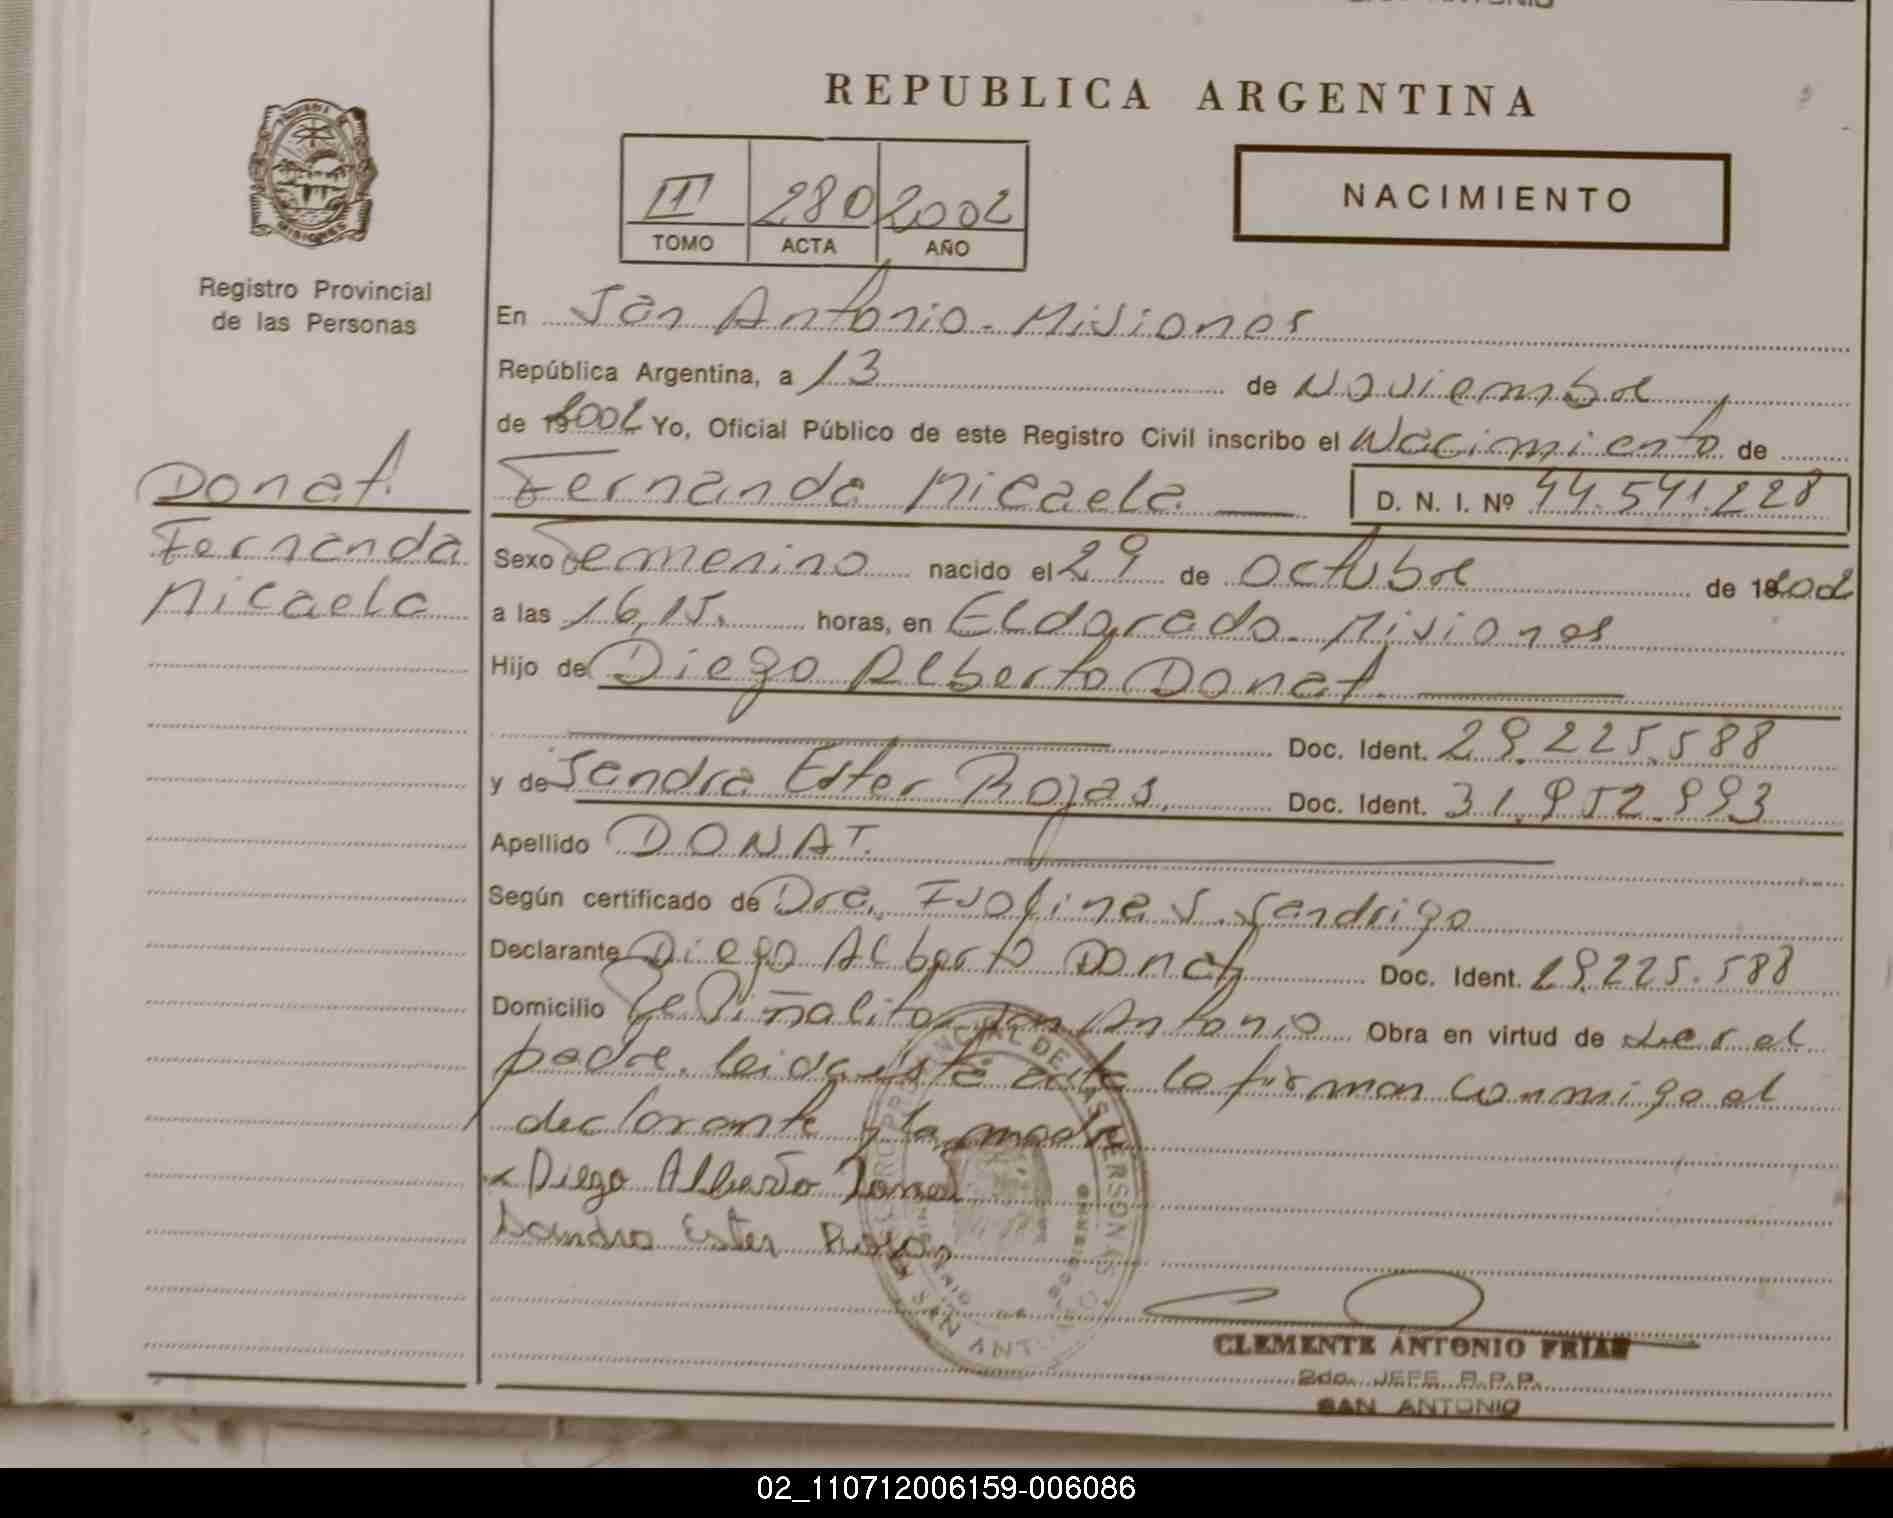 REPUBLICA ARGENTINA
NACIMIENTO
III 280 2002
TOMO ACTA AÑO
MISIONES
Registro Provincial
de las Personas
Donat.
Fernanda
Micaela
En San Antonio - Misiones
República Argentina, a 13 de Noviembre
de 192002 Yo, Oficial Público de este Registro Civil inscribo el Nacimiento de
Fernanda Micaela D. N. I. Nº 44.541.228
Sexo Femenino nacido el 29 de Octubre de 192002
a las 16,15. horas, en Eldorado - Misiones
Hijo de Diego Alberto Donat.
Doc. Ident. 29.225.588
y de Sandra Ester Rojas. Doc. Ident. 31.952.993
Apellido DONAT.
Según certificado de Dra. S. Sandrigo
Declarante Diego Alberto Donat Doc. Ident. 29.225.588
Domicilio Piñalito San Antonio Obra en virtud de ser el
padre. leida esta acta la firman conmigo el
declarante y la madre
x Diego Alberto Donat
Sandra Ester Rojas
SAN ANTONIO
CLEMENTE ANTONIO FRIAS
2do. JEFE R.P.P.
SAN ANTONIO
02_110712006159-006086